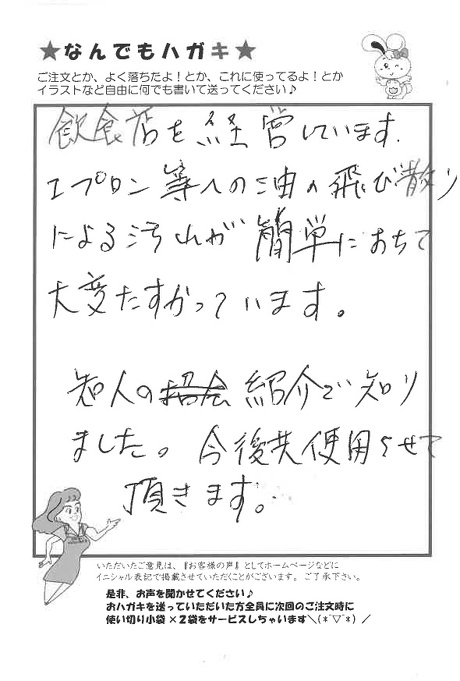 ★なんでもハガキ★
ご注文とか、よく落ちたよ！とか、これに使ってるよ！とか
イラストなど自由に何でも書いて送ってください♪
飲食店を経営しています.
エプロン等への油の飛び散り
による汚れが簡単におちて
大変たすかっています。
知人の紹介で知り
ました。今後共使用させて
頂きます。
いただいたご意見は、『お客様の声』としてホームページなどに
イニシャル表記で掲載させていただくことがございます。ご了承下さい。
是非、お声を聞かせてください♪
おハガキを送っていただいた方全員に次回のご注文時に
使い切り小袋×2袋をサービスしちゃいます＼(*´▽`*)／